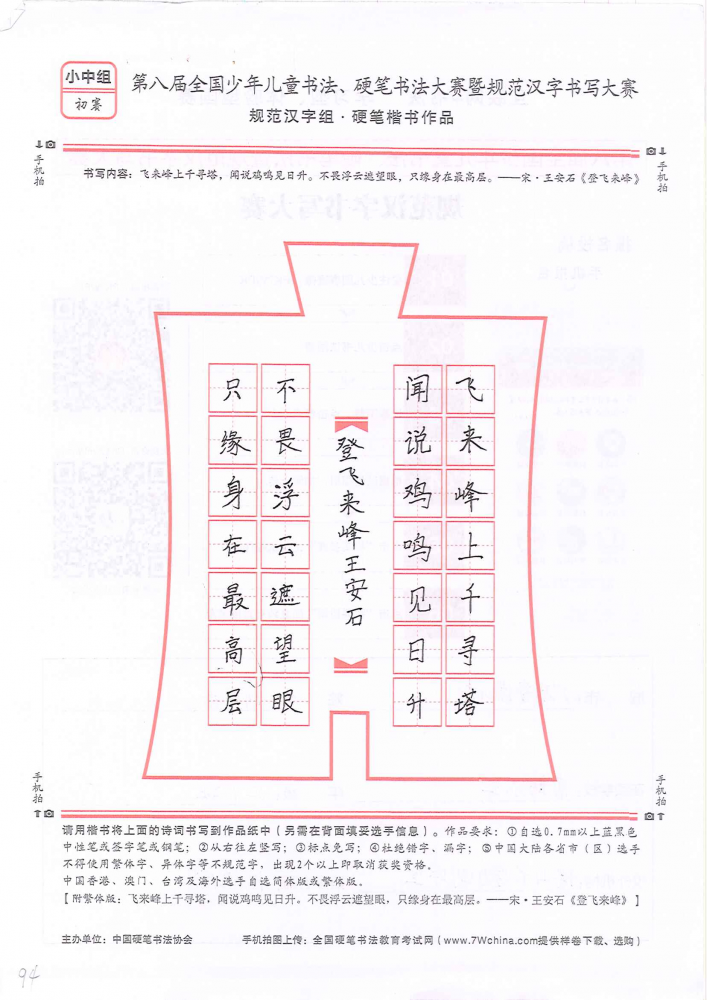 小中组
初赛
第八届全国少年儿童书法、硬笔书法大赛暨规范汉字书写大赛
规范汉字组·硬笔楷书作品
手机拍
手机拍
书写内容：飞来峰上千寻塔，闻说鸡鸣见日升。不畏浮云遮望眼，只缘身在最高层。——宋·王安石《登飞来峰》
飞来峰上千寻塔
闻说鸡鸣见日升
登飞来峰王安石
不畏浮云遮望眼
只缘身在最高层
手机拍
手机拍
请用楷书将上面的诗词书写到作品纸中（另需在背面填妥选手信息）。作品要求：①自选0.7mm以上蓝黑色
中性笔或签字笔或钢笔；②从右往左竖写；③标点免写；④杜绝错字、漏字；⑤中国大陆各省市（区）选手
不得使用繁体字、异体字等不规范字，出现2个以上即取消获奖资格。
中国香港、澳门、台湾及海外选手自选简体版或繁体版。
【附繁体版：飛來峰上千尋塔，聞說鷄鳴見日升。不畏浮雲遮望眼，只緣身在最高層。——宋·王安石《登飛來峰》】
主办单位：中国硬笔书法协会
手机拍图上传：全国硬笔书法教育考试网（www.7Wchina.com提供样卷下载、选购）
94